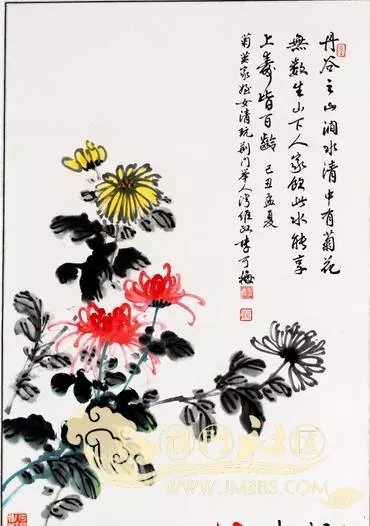 丹谷之山涧水清中有菊花
無数生山下人家飲此水能享
上寿皆百齡 己丑孟夏
菊英家姪女清玩荆门華人湾維
李可梅
WWW.JMBBS.COM